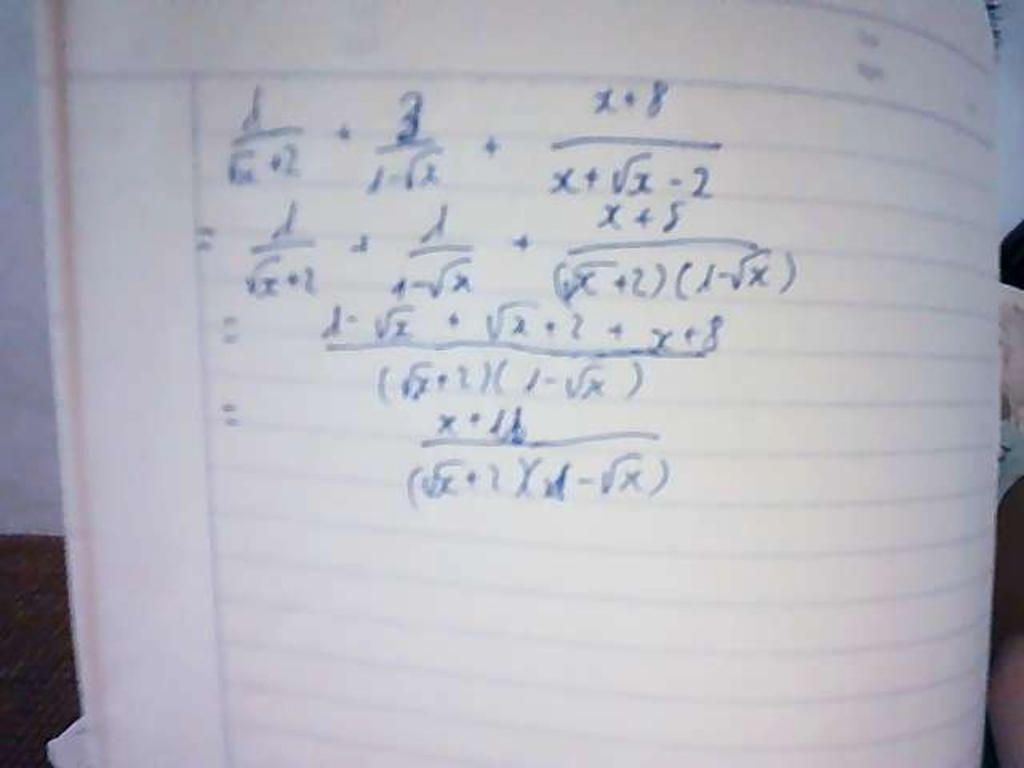 1/(√x+2) + 3/(1-√x) + (x+8)/(x+√x-2)
= 1/(√x+2) + 1/(1-√x) + (x+8)/((√x+2)(1-√x))
= (1-√x + √x+2 + x+8)/((√x+2)(1-√x))
= (x+11)/((√x+2)(1-√x))